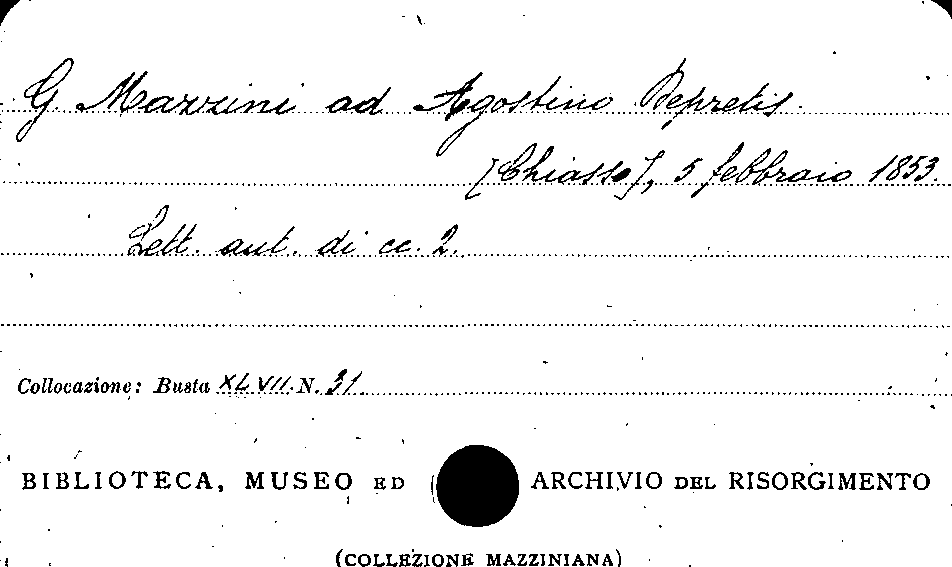 G Mazzini ad Agostino Depretis.
[Chiasso], 5 febbraio 1853.
Lett. aut. di cc. 2.
Collocazione: Busta XLVII. N. 31
BIBLIOTECA, MUSEO ED ARCHIVIO DEL RISORGIMENTO
(COLLEZIONE MAZZINIANA)